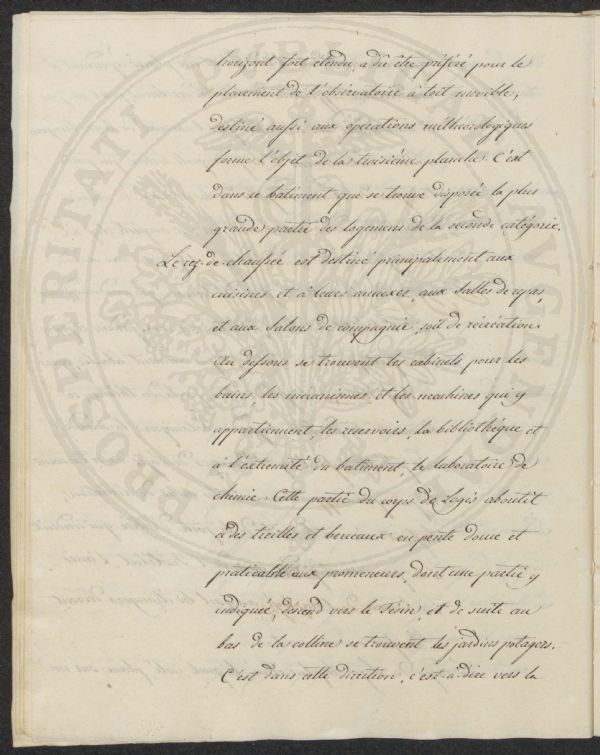 horizont fort étendu, a dû être préféré pour le
placement de l'observatoire à toit movible,
destiné aussi aux opérations météorologiques
forme l'objet de la troisiéme planche. C'est
dans ce batiment que se trouve disposée la plus
grande partie des logemens de la seconde catégorie.
Le rez-de-chaussée est destiné principalement aux
cuisines et à leurs annexes, aux Salles de repas,
et aux Salons de compagnie, soit de récréation.
Au dessous se trouvent les cabinets pour les
bains, les mécanismes et les machines qui y
appartiennent, les reservoirs, la bibliothéque et
à l'extremité du batiment le laboratoire de
chimie. Cette partie du corps de Logis aboutit
à des treilles et berceaux en pente douce et
praticable aux promeneurs, dont une partie y
indiquée, déscend vers le Tésin, et de suite au
bas de la colline se trouvent les jardins potagers.
C'est dans cette direction, c'est-à-dire vers la